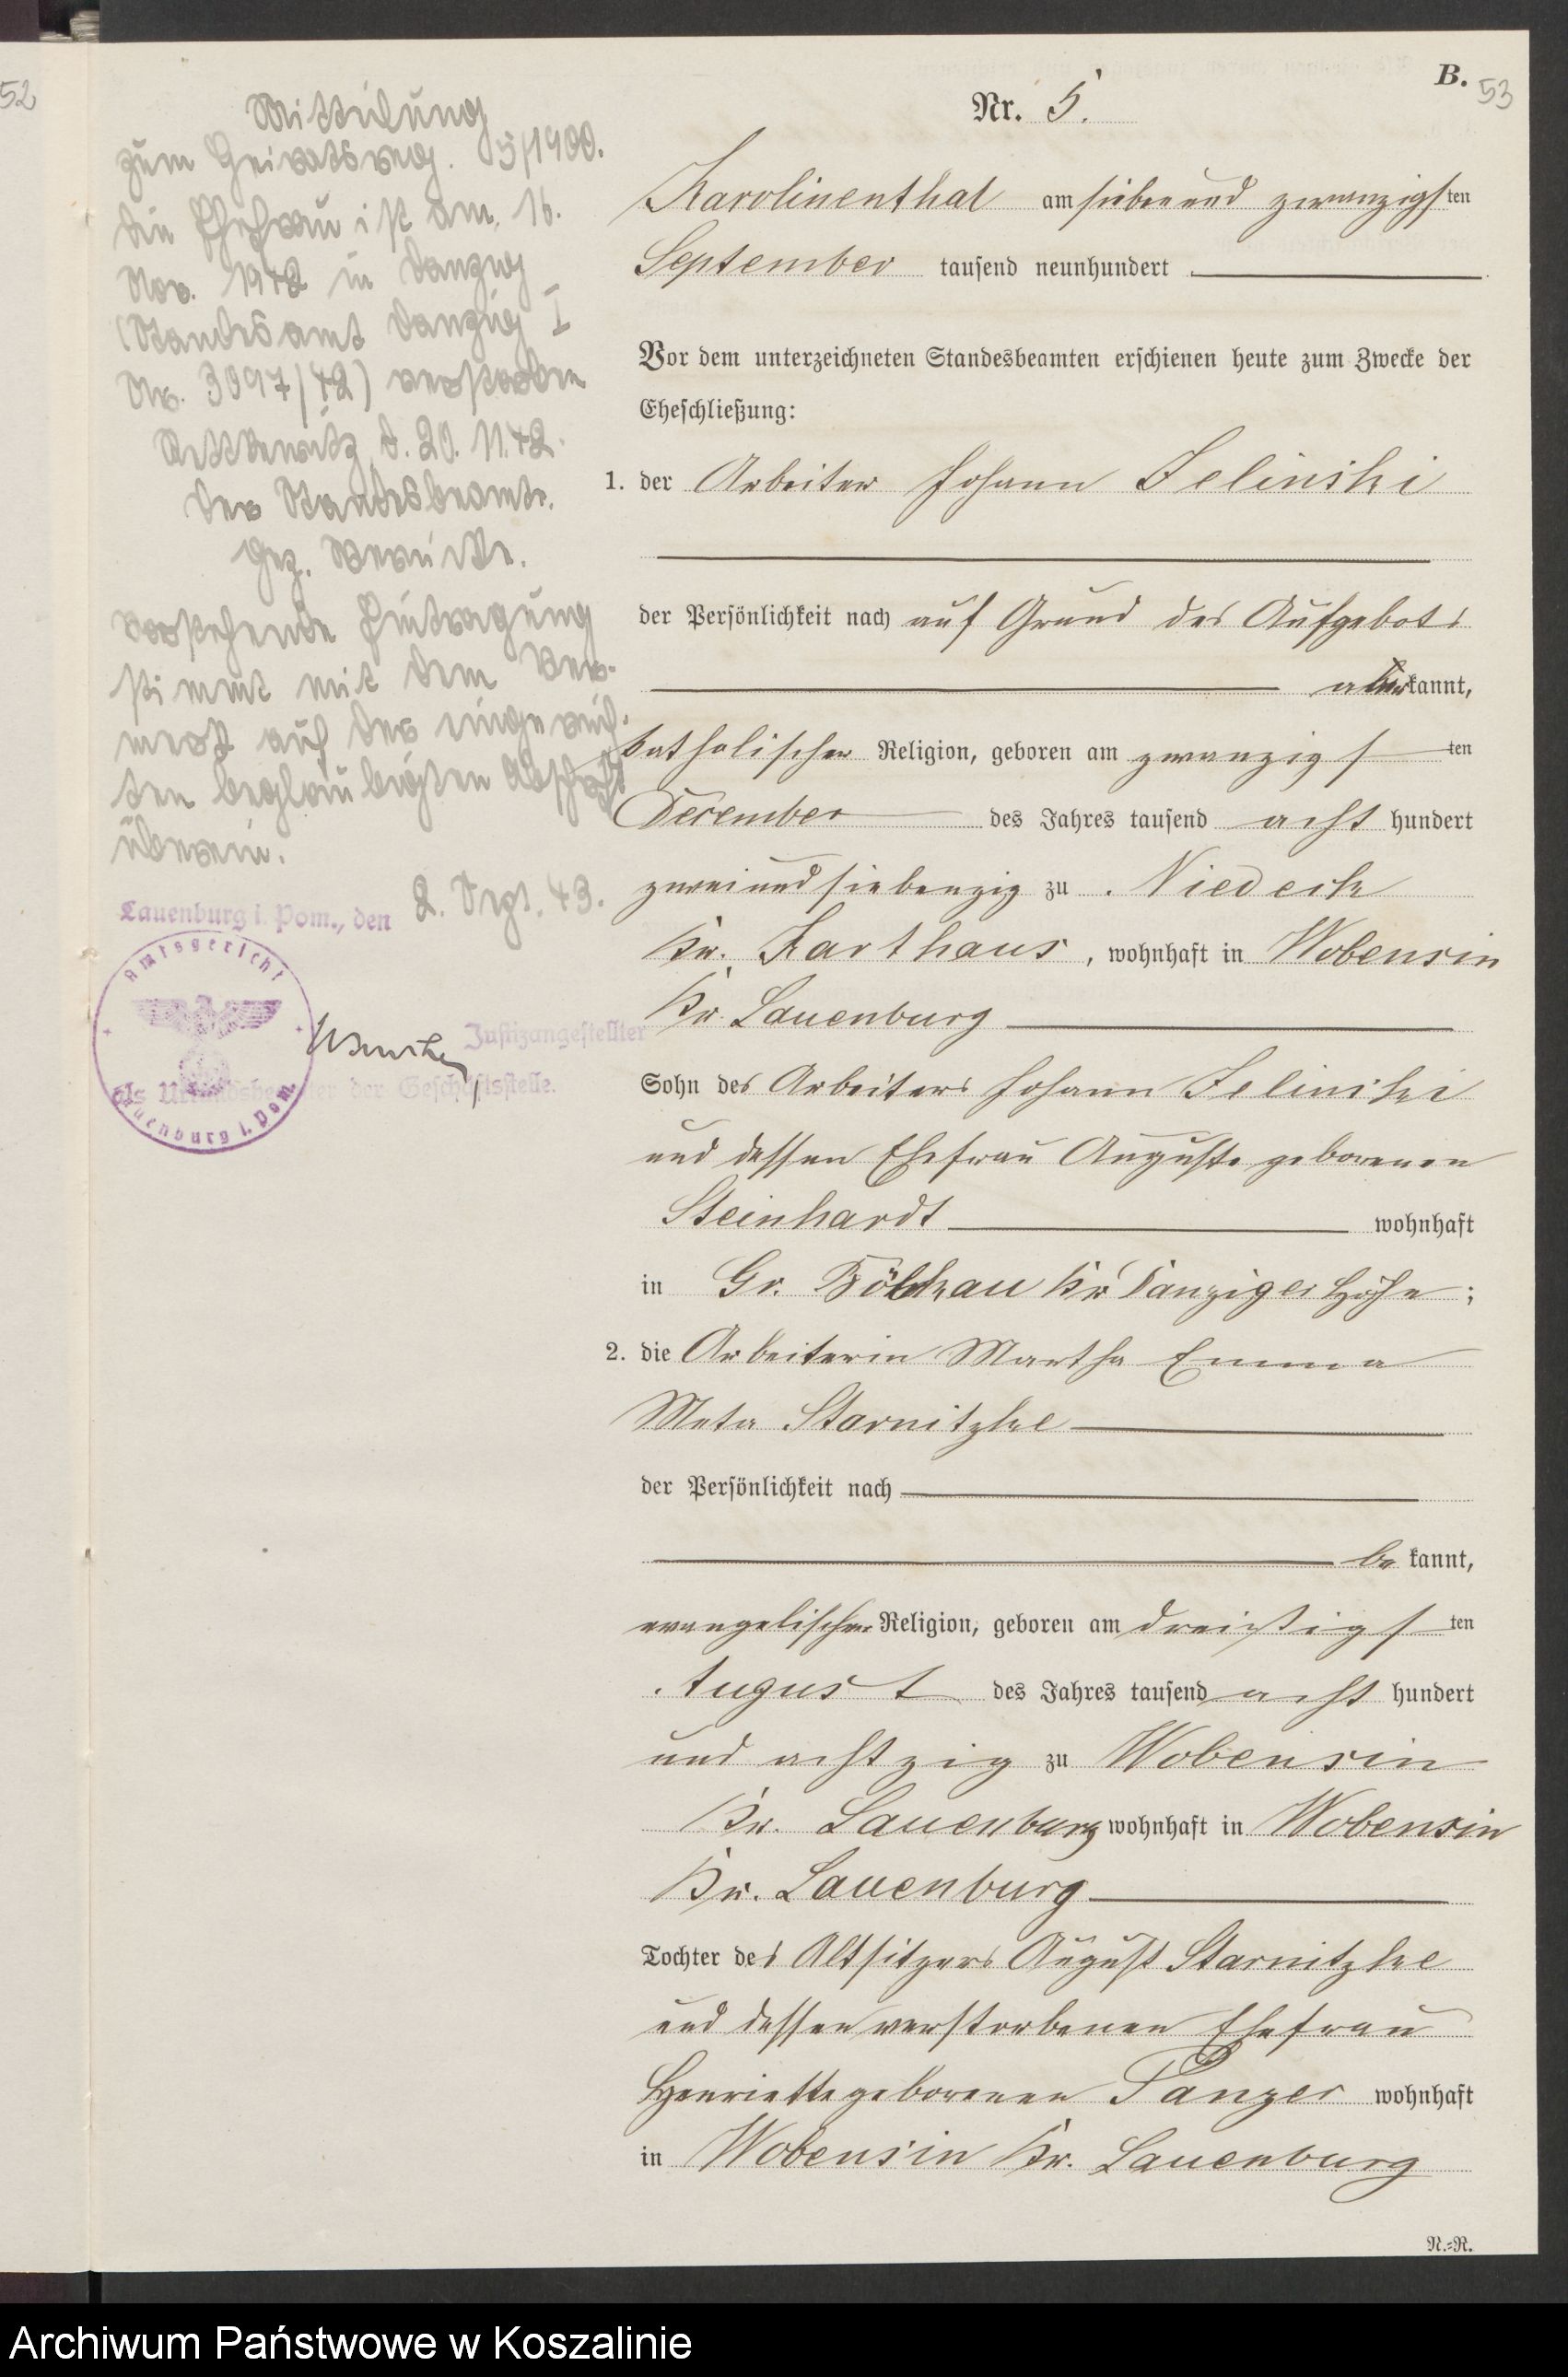 52
B.
53
Nr. 5.
Mitteilung
zum Heiratsreg. 5/1900.
Die Ehefrau ist am 16.
Nov. 1942 in Danzig
(Standesamt Danzig I
Nr. 3097/42) verstorben
d. 20. 11. 42.
Der Standesbeamte.
Gez.
Vorstehende Eintragung
stimmt mit dem Ver-
merk auf der eingereich-
ten beglaubigten Abschrift
überein.
Lauenburg i. Pom., den 2. Dez. 43.
Amtsgericht
Lauenburg i. Pom.
Justizangestellter
als Urkundsbeamter der Geschäftsstelle.
Karolinenthal am sieben und zwanzigsten
September tausend neunhundert
Vor dem unterzeichneten Standesbeamten erschienen heute zum Zwecke der
Eheschließung:
1. der Arbeiter Johann Jelinski
der Persönlichkeit nach auf Grund des Aufgebots
kannt,
katholischer Religion, geboren am zwanzigsten
December des Jahres tausend acht hundert
zweiundsiebenzig zu Niedeck
Kr. Karthaus, wohnhaft in Wobensin
Kr. Lauenburg
Sohn des Arbeiters Johann Jelinski
und dessen Ehefrau Auguste geborenen
Steinhardt wohnhaft
in Gr. Bölkau Kr. Danziger Höhe;
2. die Arbeiterin Martha Emma
Meta Starnitzke
der Persönlichkeit nach
be kannt,
evangelischer Religion, geboren am dreißigsten
August des Jahres tausend acht hundert
und achtzig zu Wobensin
Kr. Lauenburg wohnhaft in Wobensin
Kr. Lauenburg
Tochter des Altsitzers August Starnitzke
und dessen verstorbenen Ehefrau
Henriette geborenen Panzer wohnhaft
in Wobensin Kr. Lauenburg
N.=R.
Archiwum Państwowe w Koszalinie